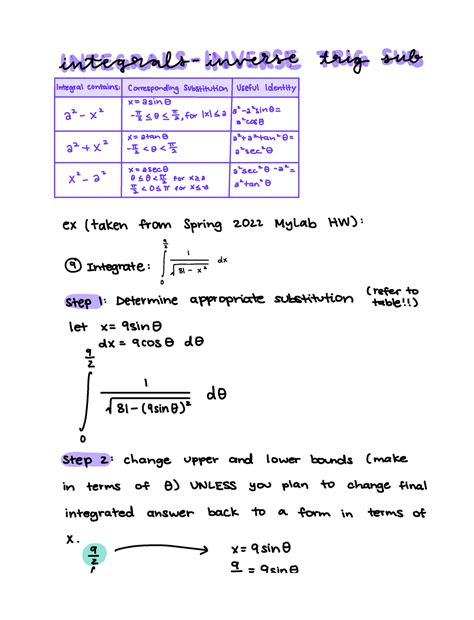 integrals-inverse trig sub
Integral contains: Corresponding Substitution Useful Identity
a² - x²
x = a sin θ
-π/2 ≤ θ ≤ π/2, for |x| ≤ a
a² - a² sin θ =
a² cos θ
a² + x²
x = a tan θ
-π/2 < θ < π/2
a² + a² tan² θ =
a² sec² θ
x² - a²
x = a sec θ
0 ≤ θ < π/2 for x ≥ a
π/2 < θ ≤ π for x ≤ -a
a² sec² θ - a² =
a² tan² θ
ex (taken from Spring 2022 MyLab HW):
⑨ Integrate: ∫₀^(9/2) 1/√(81 - x²) dx
Step 1: Determine appropriate substitution (refer to
table!!)
let x = 9 sin θ
dx = 9 cos θ dθ
∫₀^(9/2) 1/√(81 - (9 sin θ)²) dθ
Step 2: change upper and lower bounds (make
in terms of θ) UNLESS you plan to change final
integrated answer back to a form in terms of
x.
9/2 → x = 9 sin θ
9/2 = 9 sin θ